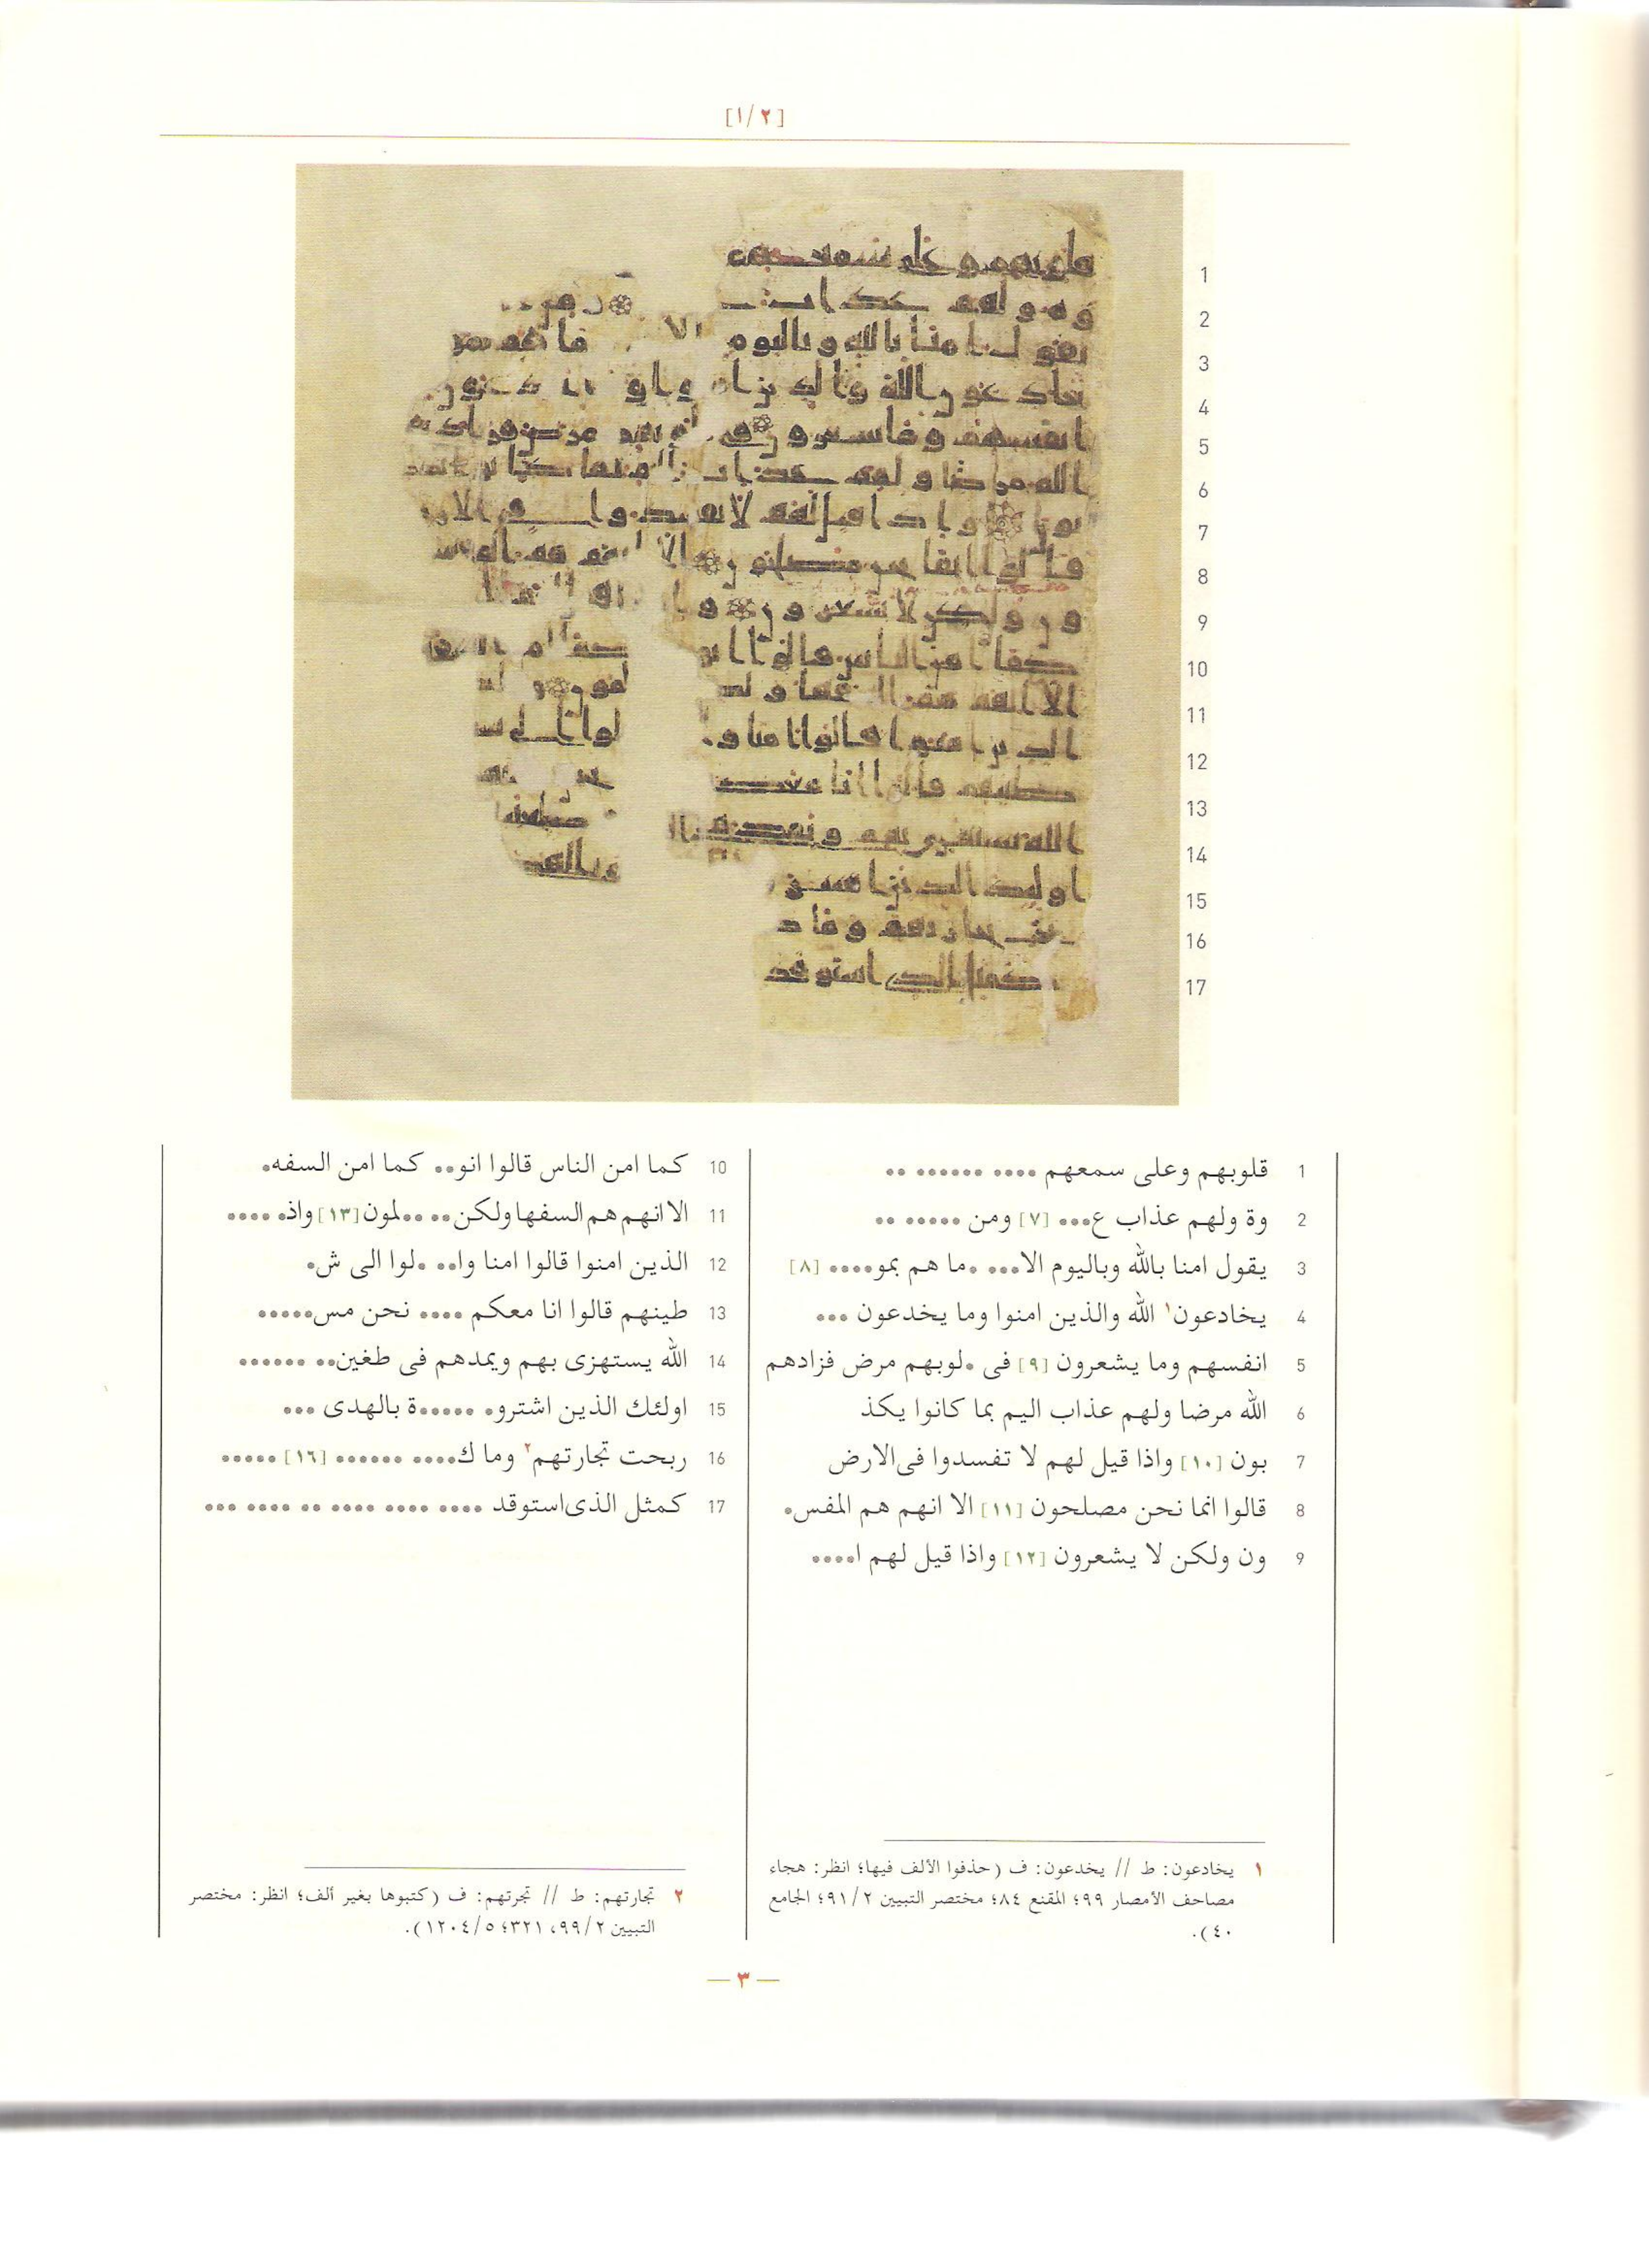 [١/٢]
1
2
3
4
5
6
7
8
9
10
11
12
13
14
15
16
17
1 قلوبهم وعلى سمعهم •••• •••••• ••
2 وة ولهم عذاب ع••• [٧] ومن ••••• ••
3 يقول امنا بالله وباليوم الا••• •ما هم بمو•••• [٨]
4 يخادعون١ الله والذين امنوا وما يخدعون •••
5 انفسهم وما يشعرون [٩] فى •لوبهم مرض فزادهم
6 الله مرضا ولهم عذاب اليم بما كانوا يكذ
7 بون [١٠] واذا قيل لهم لا تفسدوا فى الارض
8 قالوا انما نحن مصلحون [١١] الا انهم هم المفس•
9 ون ولكن لا يشعرون [١٢] واذا قيل لهم ا••••
10 كما امن الناس قالوا انو•• كما امن السفه•
11 الا انهم هم السفها ولكن•• ••لمون [١٣] واذ• ••••
12 الذين امنوا قالوا امنا وا•• •لوا الى ش•
13 طينهم قالوا انا معكم •••• نحن مس•••••
14 الله يستهزى بهم ويمدهم فى طغين•• ••••••
15 اولئك الذين اشترو• ••••••ة بالهدى •••
16 ربحت تجارتهم٢ وما ك•••• •••••• [١٦] •••••
17 كمثل الذى استوقد •••• •••• •••• •• •••• •••
١ يخادعون: ط // يخدعون: ف (حذفوا الألف فيها؛ انظر: هجاء
مصاحف الأمصار ٩٩؛ المقنع ٨٤؛ مختصر التبيين ٩١/٢؛ الجامع
٤٠).
٢ تجارتهم: ط // تجرتهم: ف (كتبوها بغير ألف؛ انظر: مختصر
التبيين ٩٩/٢، ٣٢١؛ ١٢٠٤/٥).
— ٣ —